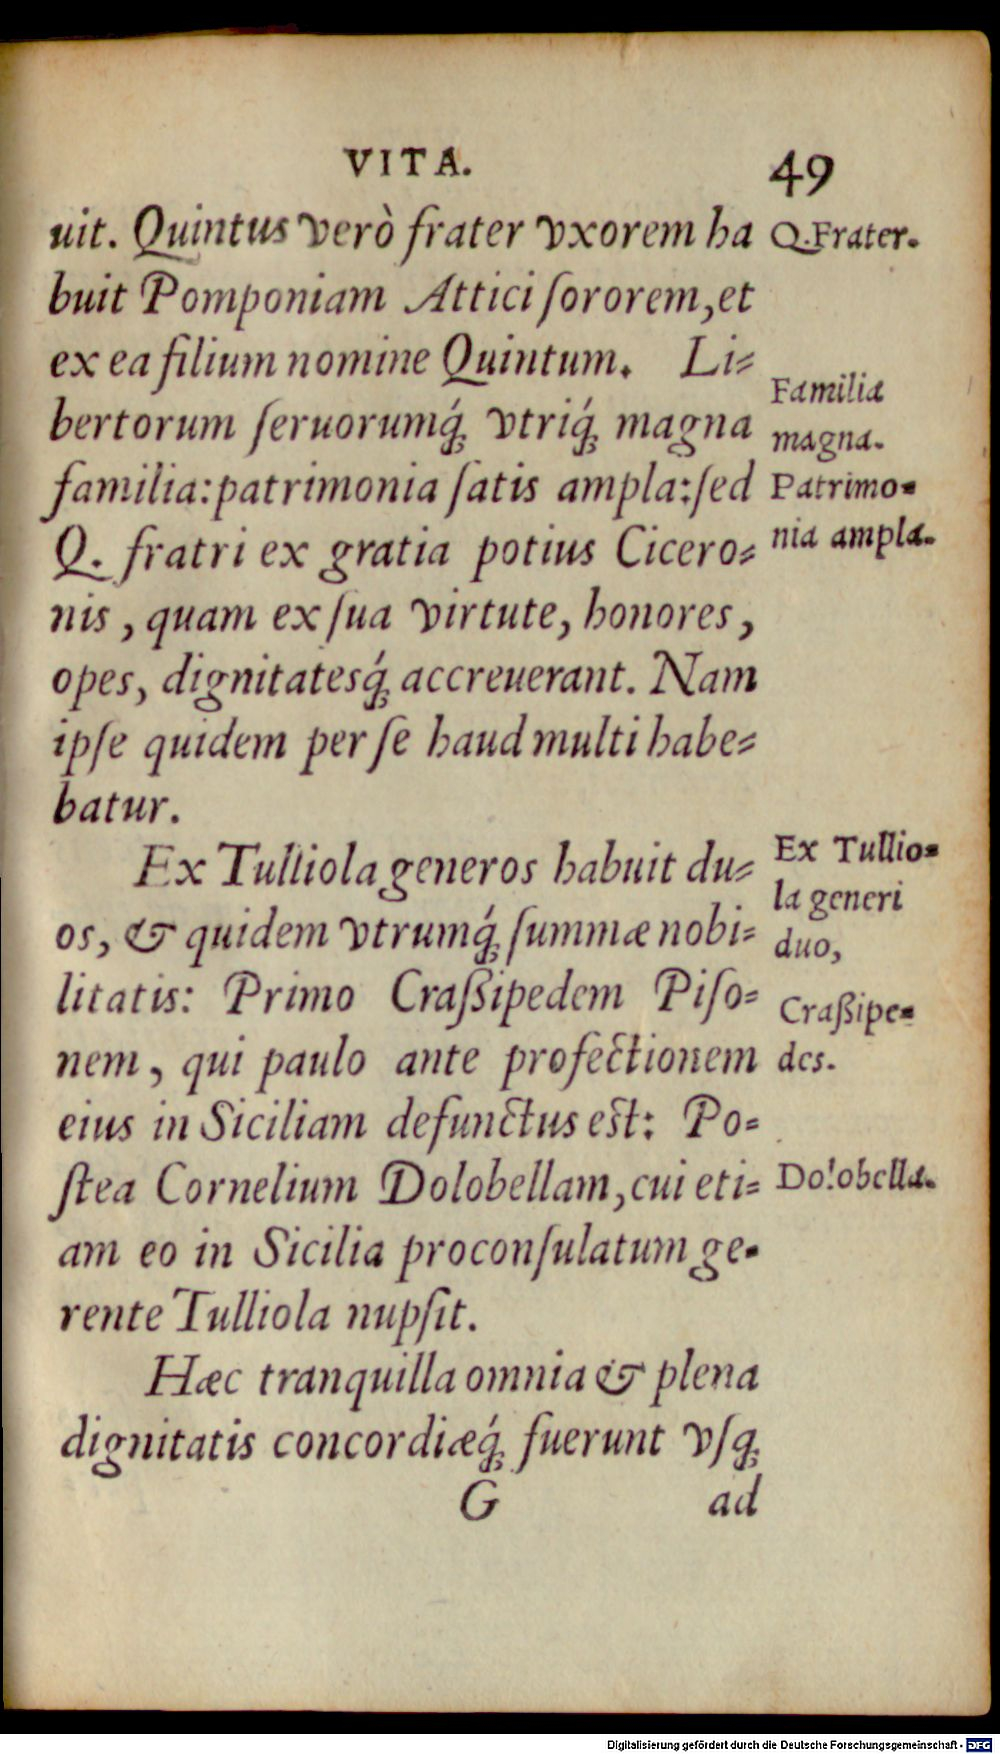 VITA. 49
uit. Quintus verò frater vxorem ha
Q. Frater.
buit Pomponiam Attici ſororem, et
ex ea filium nomine Quintum. Li⸗
bertorum ſeruorumq́; vtriq́; magna
Familia
magna.
familia: patrimonia ſatis ampla: ſed
Patrimo⸗
nia ampla.
Q. fratri ex gratia potius Cicero⸗
nis, quam ex ſua virtute, honores,
opes, dignitatesq́; accreuerant. Nam
ipſe quidem per ſe haud multi habe⸗
batur.
Ex Tulliola generos habuit du⸗
Ex Tullio⸗
la generi
duo,
os, & quidem vtrumq́; ſummæ nobi⸗
litatis: Primo Craßipedem Piſo⸗
Craßipe⸗
des.
nem, qui paulo ante profectionem
eius in Siciliam defunctus est: Po⸗
ſtea Cornelium Dolobellam, cui eti⸗
Dolobella.
am eo in Sicilia proconſulatum ge⸗
rente Tulliola nupſit.
Hæc tranquilla omnia & plena
dignitatis concordiæq́; fuerunt vſq;
G ad
Digitalisierung gefördert durch die Deutsche Forschungsgemeinschaft - DFG